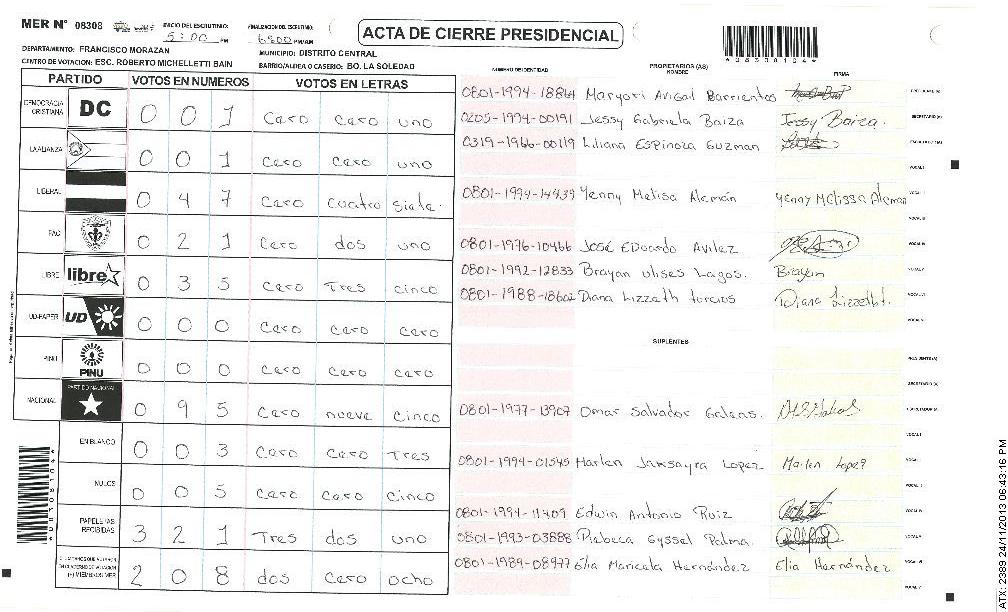 MER N° 08308 INICIO DEL ESCRUTINIO: 5:00 PM FINALIZACION DEL ESCRUTINIO: PM/AM
ACTA DE CIERRE PRESIDENCIAL
*08308104*
DEPARTAMENTO: FRANCISCO MORAZAN MUNICIPIO: DISTRITO CENTRAL
CENTRO DE VOTACION: ESC. ROBERTO MICHELLETTI BAIN BARRIO/ALDEA O CASERIO: BO. LA SOLEDAD
PARTIDO VOTOS EN NUMEROS VOTOS EN LETRAS
DEMOCRACIA CRISTIANA DC 0 0 1 Cero cero uno
LA ALIANZA 0 0 1 Cero cero uno
LIBERAL 0 4 7 Cero cuatro siete.
PAC 0 2 1 Cero dos uno
LIBRE libre 0 3 5 Cero Tres cinco
UD-FAPER UD 0 0 0 Cero cero cero
PINU PINU 0 0 0 Cero cero cero
NACIONAL PARTIDO NACIONAL 0 9 5 Cero nueve cinco
EN BLANCO 0 0 3 Cero cero Tres
NULOS 0 0 5 Cero cero cinco
PAPELETAS RECIBIDAS 3 2 1 Tres dos uno
2 0 8 dos cero ocho
NUMERO DE IDENTIDAD PROPIETARIOS (AS) NOMBRE FIRMA
0801-1994-18864 Maryori Avigal Barrientos
0205-1994-00191 Jessy Gabriela Baiza Jessy Baiza.
0319-1966-00119 Liliana Espinoza Guzman
0801-1994-14439 Yenny Melisa Alemán Yenny Melissa Aleman
0801-1976-10466 José Eduardo Avilez
0801-1992-12833 Brayan ulises Lagos. Brayan
0801-1988-18602 Diana Lizzeth turcios Diana Lizzeth t.
SUPLENTES
0801-1977-13907 Omar Salvador
0801-1994-01545 Lopez Marlen Lopez
0801-1994-11409 Edwin Antonio Ruiz
0801-1993-03888 Rebeca Gyssel Palma.
0801-1989-08977 Elia Maricela Hernández Elia Hernández
ATX: 2389 24/11/2013 06:43:16 PM